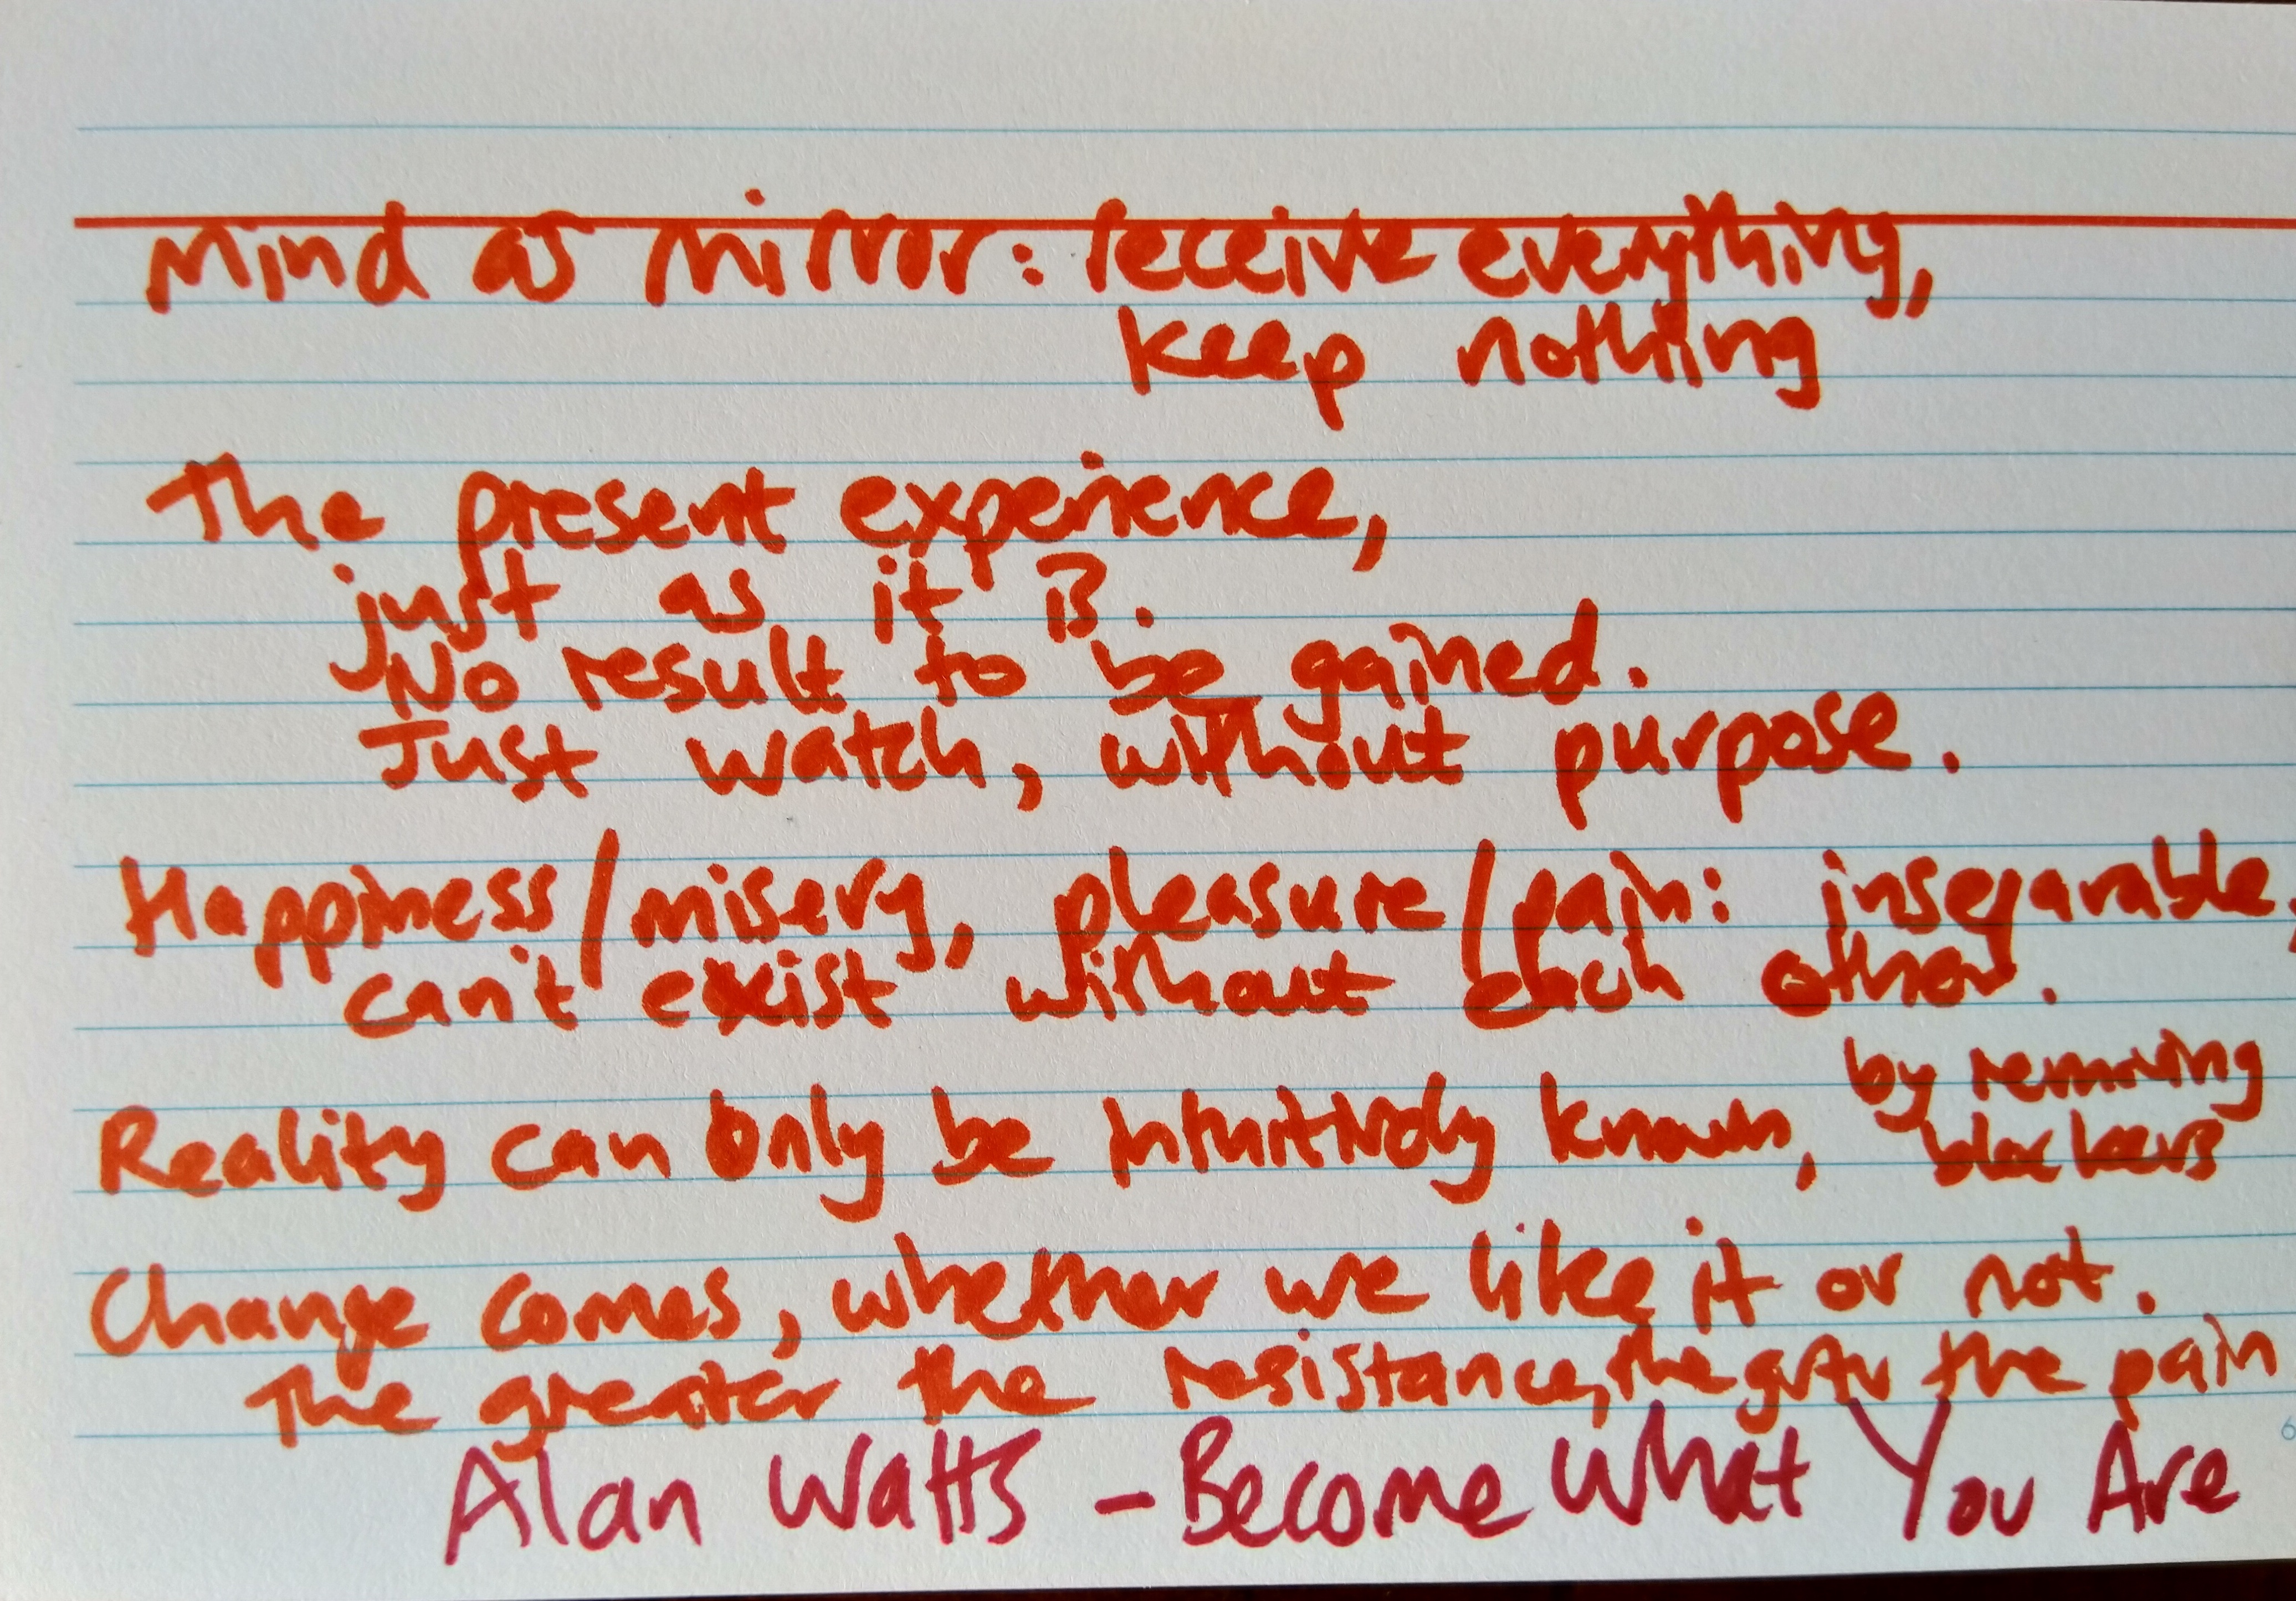 Mind as mirror: receive everything,
keep nothing
The present experience,
just as it is.
No result to be gained.
Just watch, without purpose.
Happiness/misery, pleasure/pain: inseparable,
can't exist without each other.
Reality can only be intuitively known, by removing
blockers
Change comes, whether we like it or not.
The greater the resistance, the grtr the pain
Alan Watts - Become What You Are
6